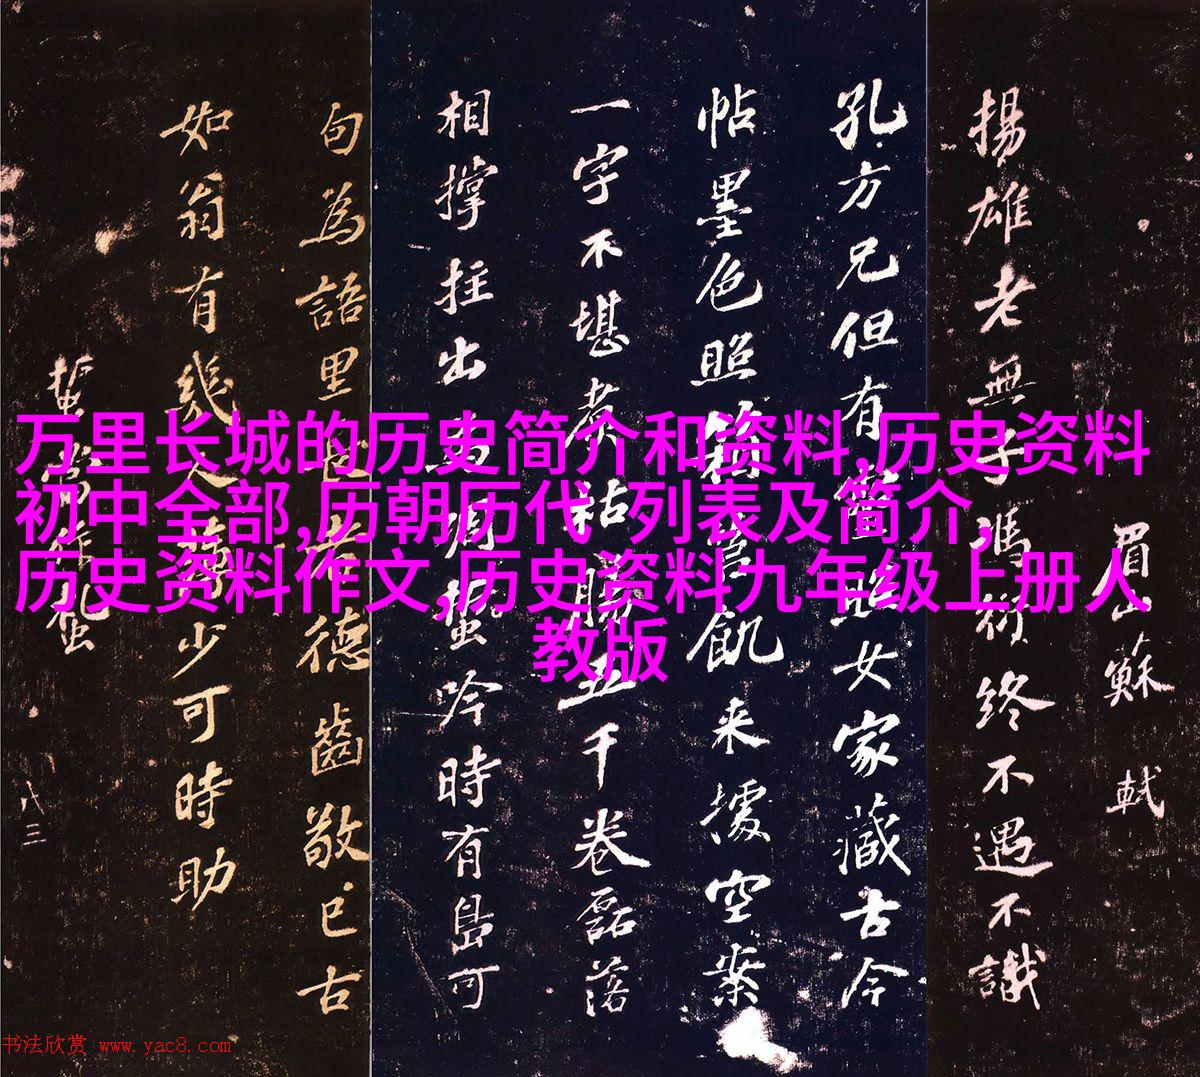 眉山蘇軾
揚雄老無子馮衍終不遇不識
孔方兄但有靈照女家藏古今
帖墨色照箱筥飢来據空案
一字不堪煮枯腸五千卷磊落
相撐拄出為蜩蛩吟時有島可
句為語里長者德齒敬已古
如翁有幾人薄少可時助
八三
万里长城的历史简介和资料,历史资料
初中全部,历朝历代 列表及简介,
历史资料作文,历史资料九年级上册人
教版
书法欣赏 www.yac8.com